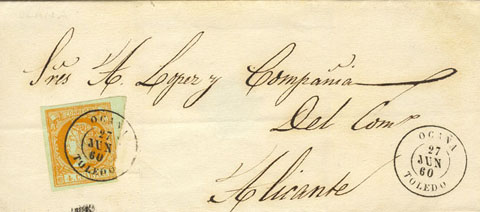 Sres A. Lopez y Compañia
Del Comº
Alicante
OCAÑA
27
JUN
60
TOLEDO
OCAÑA
27
JUN
60
TOLEDO